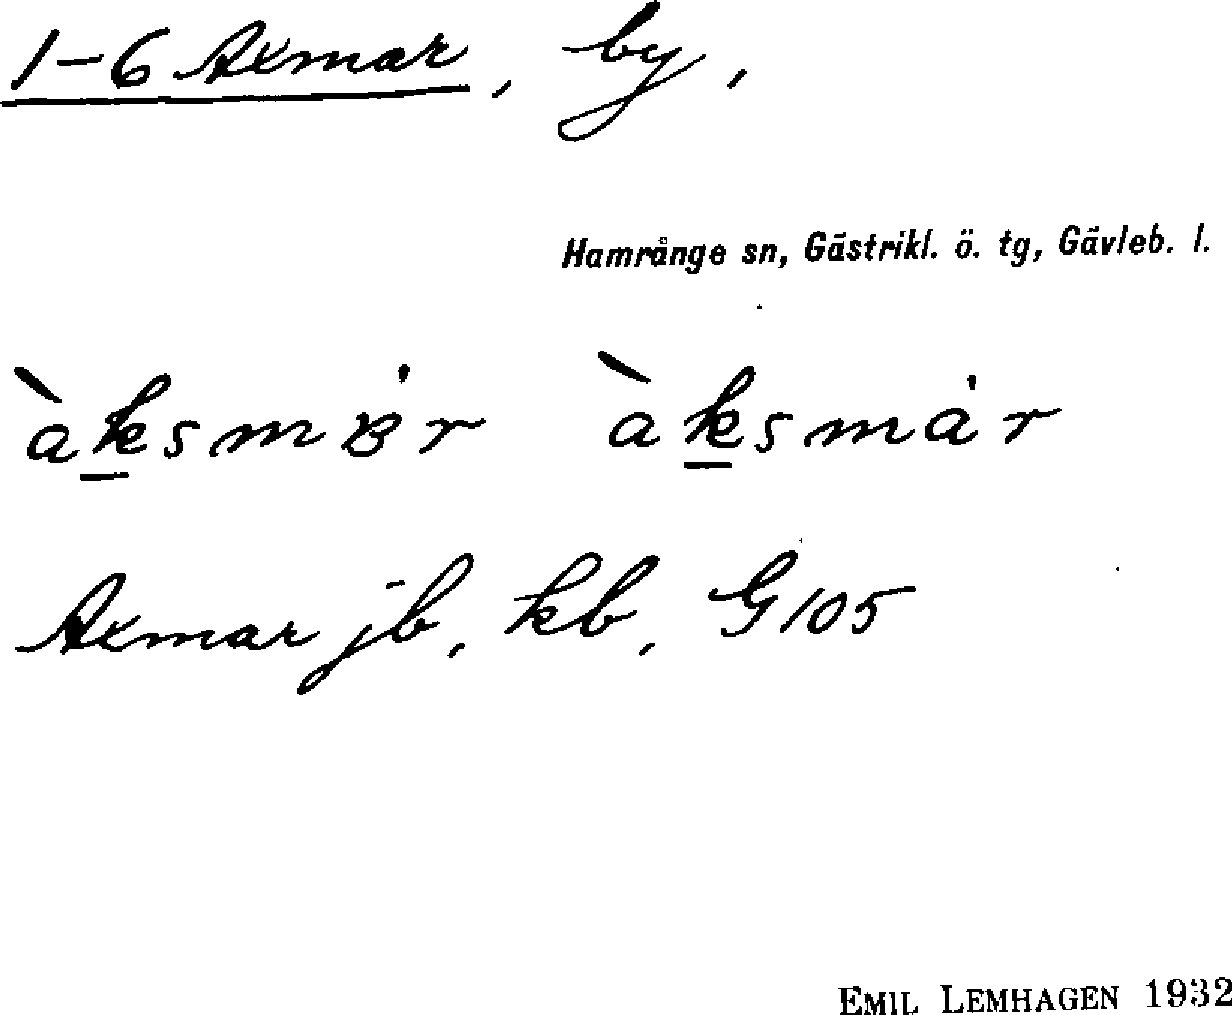 1–6 Axmar, by,
Hamrånge sn, Gästrikl. ö. tg, Gävleb. l.
àksmʙr àksmar
Axmar jb, kb, G105
EMIL LEMHAGEN 1932